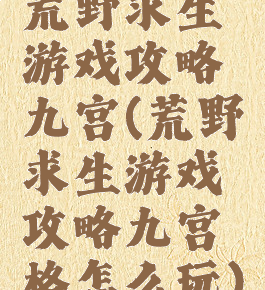 荒野求生
游戏攻略
九宫(荒野
求生游戏
攻略九宫
格怎么玩)